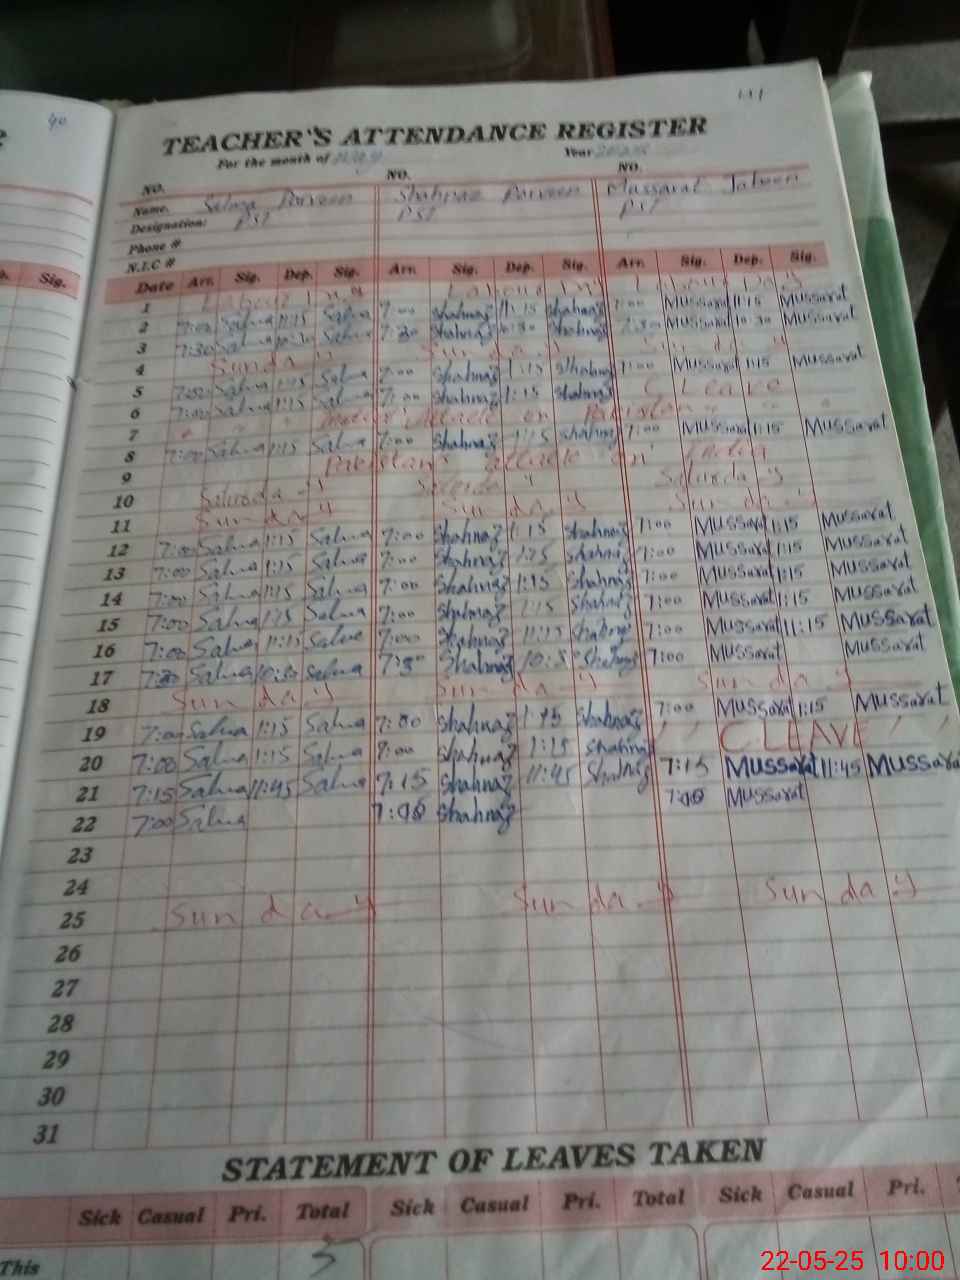 40
TEACHER'S ATTENDANCE REGISTER
For the month of May Year
NO. NO. NO.
Name. Salma Parveen Shahnaz Parveen Mussarat
Designation: PST PST PST
Phone #
N.I.C #
p. Sig. Date Arr. Sig. Dep. Sig. Arr. Sig. Dep. Sig. Arr. Sig. Dep. Sig.
1 Labour Day Labour Day Labour Day
2 7:00 Salma 1:15 Salma 7:00 Shahnaz 11:15 Shahnaz 7:00 Mussarat 11:15 Mussarat
3 7:30 Salma 10:30 Salma 7:30 Shahnaz 10:30 Shahnaz 7:30 Mussarat 10:30 Mussarat
4 Sunday Sunday Sunday
5 7:00 Salma 1:15 Salma 7:00 Shahnaz 1:15 Shahnaz 7:00 Mussarat 1:15 Mussarat
6 7:00 Salma 1:15 Salma 7:00 Shahnaz 1:15 Shahnaz C Leave
7 attack on Pakistan
8 7:00 Salma 1:15 Salma 7:00 Shahnaz 1:15 Shahnaz 7:00 Mussarat 1:15 Mussarat
9 Pakistan attack on India
10 Saturday Saturday Saturday
11 Sunday Sunday Sunday
12 7:00 Salma 1:15 Salma 7:00 Shahnaz 1:15 Shahnaz 7:00 Mussarat 1:15 Mussarat
13 7:00 Salma 1:15 Salma 7:00 Shahnaz 1:15 Shahnaz 7:00 Mussarat 1:15 Mussarat
14 7:00 Salma 1:15 Salma 7:00 Shahnaz 1:15 Shahnaz 7:00 Mussarat 1:15 Mussarat
15 7:00 Salma 1:15 Salma 7:00 Shahnaz 1:15 Shahnaz 7:00 Mussarat 1:15 Mussarat
16 7:00 Salma 11:15 Salma 7:00 Shahnaz 11:15 Shahnaz 7:00 Mussarat 11:15 Mussarat
17 7:30 Salma 10:30 Salma 7:30 Shahnaz 10:30 Shahnaz 7:00 Mussarat Mussarat
18 Sunday Sunday Sunday
19 7:00 Salma 1:15 Salma 7:00 Shahnaz 1:15 Shahnaz 7:00 Mussarat 1:15 Mussarat
20 7:00 Salma 1:15 Salma 7:00 Shahnaz 1:15 Shahnaz C LEAVE
21 7:15 Salma 11:45 Salma 7:15 Shahnaz 11:45 Shahnaz 7:15 Mussarat 11:45 Mussarat
22 7:00 Salma 7:00 Shahnaz 7:00 Mussarat
23
24
25 Sunday Sunday Sunday
26
27
28
29
30
31
STATEMENT OF LEAVES TAKEN
Sick Casual Pri. Total Sick Casual Pri. Total Sick Casual Pri.
This
22-05-25 10:00